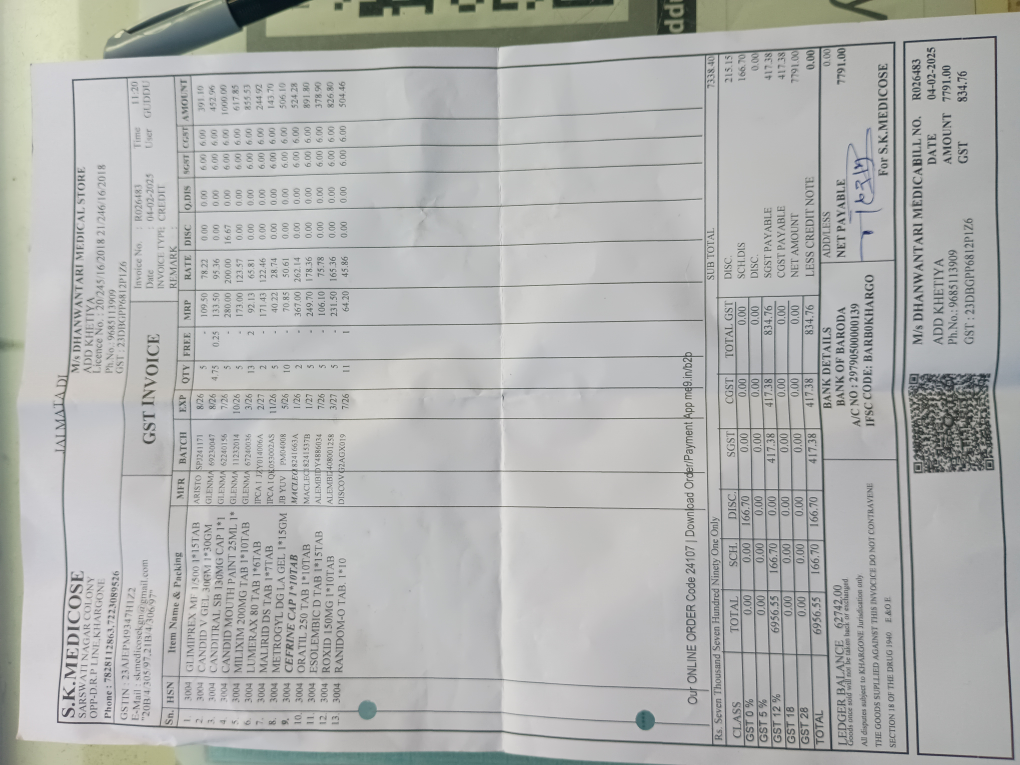 JAI MATA DI
S.K.MEDICOSE
SARSWATI NAGAR COLONY
OPP-D.R.P LINE,KHARGONE
Phone : 7828112863,7223089526
GSTIN : 23AJEPM9347H1Z2
E-Mail : skmedicosekgn@gmail.com
"20B/4/305/97,21B/4/306/97"
GST INVOICE
M/s DHANWANTARI MEDICAL STORE
ADD KHETIYA
Licence No. : 20/245/16/2018 21/246/16/2018
Ph.No.: 9685113909
GST : 23DBGPP6812P1Z6
Invoice No. : R026483 Time 11:20
Date : 04-02-2025 User GUDDU
INVOICE TYPE: CREDIT
REMARK :
Sn. HSN Item Name & Packing MFR BATCH EXP QTY FREE MRP RATE DISC Q.DIS SGST CGST AMOUNT
1. 3004 GLIMIPREX MF 1/500 1*15TAB ARISTO SPJ241171 8/26 5 - 109.50 78.22 0.00 0.00 6.00 6.00 391.10
2. 3004 CANDID V GEL 30GM 1*30GM GLENMA 69230047 8/26 4.75 0.25 133.50 95.36 0.00 0.00 6.00 6.00 452.96
3. 3004 CANDITRAL SB 130MG CAP 1*1 GLENMA 62240156 7/26 5 - 280.00 200.00 16.67 0.00 6.00 6.00 1000.00
4. 3004 CANDID MOUTH PAINT 25ML 1* GLENMA 11232014 10/26 5 - 173.00 123.57 0.00 0.00 6.00 6.00 617.85
5. 3004 MILIXIM 200MG TAB 1*10TAB GLENMA 67240036 3/26 13 2 92.13 65.81 0.00 0.00 6.00 6.00 855.53
6. 3004 LUMERAX 80 TAB 1*6TAB IPCA 1 JZY014006A 2/27 2 - 171.43 122.46 0.00 0.00 6.00 6.00 244.92
7. 3004 MALIRID DS TAB 1*7TAB IPCA 1 11/26 5 - 40.22 28.74 0.00 0.00 6.00 6.00 143.70
8. 3004 METROGYL DG LA GEL 1*15GM JB YUV PM04008 5/26 10 - 70.85 50.61 0.00 0.00 6.00 6.00 506.10
9. 3004 CEFRINE CAP 1*10TAB MACLEO 1/26 2 - 367.00 262.14 0.00 0.00 6.00 6.00 524.28
10. 3004 ORATIL 250 TAB 1*10TAB MACLEO 1/27 5 - 249.70 178.36 0.00 0.00 6.00 6.00 891.80
11. 3004 ESOLEMBIC D TAB 1*15TAB ALEMBI 7/26 5 - 106.10 75.78 0.00 0.00 6.00 6.00 378.90
12. 3004 ROXID 150MG 1*10TAB ALEMBI 2408001258 3/27 5 - 231.50 165.36 0.00 0.00 6.00 6.00 826.80
13. 3004 RANIDOM-O TAB 1*10 DISCOV 7/26 11 1 64.20 45.86 0.00 0.00 6.00 6.00 504.46
Our ONLINE ORDER Code 24107 | Download Order/Payment App me9.in/b2b
Rs. Seven Thousand Seven Hundred Ninety One Only
SUB TOTAL 7338.40
CLASS TOTAL SCH. DISC. SGST CGST TOTAL GST
GST 0 % 0.00 0.00 166.70 0.00 0.00 0.00
GST 5 % 0.00 0.00 0.00 0.00 0.00 0.00
GST 12 % 6956.55 166.70 0.00 417.38 417.38 834.76
GST 18 0.00 0.00 0.00 0.00 0.00 0.00
GST 28 0.00 0.00 0.00 0.00 0.00 0.00
TOTAL 6956.55 166.70 166.70 417.38 417.38 834.76
DISC. 215.15
SCH.DIS 166.70
DISC. 0.00
SGST PAYABLE 417.38
CGST PAYABLE 417.38
NET AMOUNT 7791.00
LESS CREDIT NOTE 0.00
ADD/LESS 0.00
NET PAYABLE 7791.00
LEDGER BALANCE 62742.00
Goods once sold will not be taken back or exchanged
All disputes subject to KHARGONE Jurisdication only
THE GOODS SUPLLIED AGAINST THIS INVOCICE DO NOT CONTRAVENE
SECTION 18 OF THE DRUG 1940 E.&O.E
BANK DETAILS
BANK OF BARODA
A/C NO : 29790500000139
IFSC CODE: BARB0KHARGO
For S.K.MEDICOSE
M/s DHANWANTARI MEDICA
ADD KHETIYA
Ph.No.: 9685113909
GST : 23DBGPP6812P1Z6
BILL NO. R026483
DATE 04-02-2025
AMOUNT 7791.00
GST 834.76